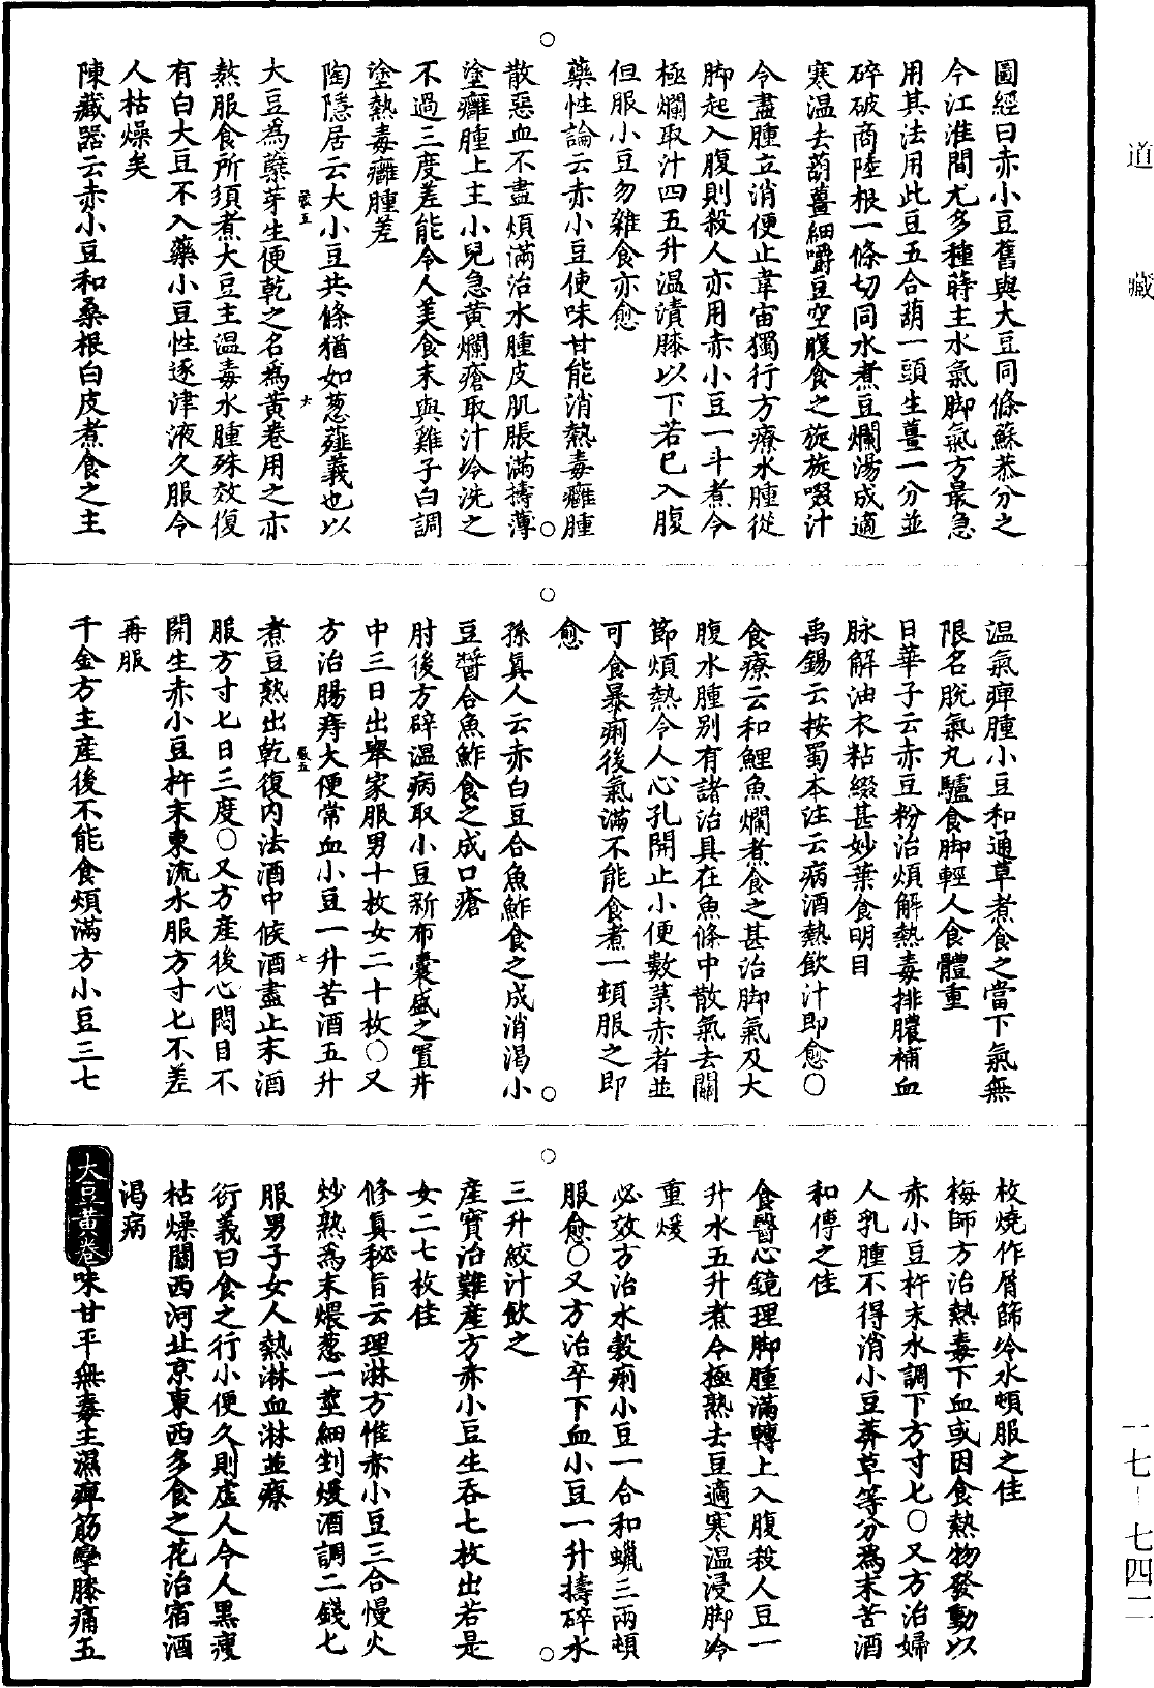 道藏
圖經曰赤小豆舊與大豆同條蘇恭分之
今江淮間尤多種蒔主水氣脚氣方最急
用其法用此豆五合葫一頭生薑一分並
碎破商陸根一條切同水煮豆爛湯成適
寒温去葫薑細嚼豆空腹食之旋旋啜汁
令盡腫立消便止韋宙獨行方療水腫從
脚起入腹則殺人亦用赤小豆一斗煮令
極爛取汁四五升温漬膝以下若已入腹
但服小豆勿雜食亦愈
藥性論云赤小豆使味甘能消熱毒癰腫
散惡血不盡煩滿治水腫皮肌脹滿擣薄
塗癰腫上主小兒急黄爛瘡取汁令洗之
不過三度差能令人美食末與雞子白調
塗熱毒癰腫差
陶隱居云大小豆共條猶如葱薤義也以
大豆為蘖芽生便乾之名為黄卷用之亦
熬服食所須煮大豆主温毒水腫殊效復
有白大豆不入藥小豆性逐津液久服令
人枯燥矣
陳藏器云赤小豆和桑根白皮煮食之主
温氣痺腫小豆和通草煮食之當下氣無
限名脱氣丸驢食脚輕人食體重
日華子云赤豆粉治煩解熱毒排膿補血
脉解油衣粘綴甚妙葉食明目
禹錫云按蜀本注云病酒熱飲汁即愈○
食療云和鯉魚爛煮食之甚治脚氣及大
腹水腫别有諸治具在魚條中散氣去關
節煩熱令人心孔開止小便數菉赤者並
可食暴痢後氣滿不能食煮一頓服之即
愈
孫真人云赤白豆合魚鮓食之成消渴小
豆醬合魚鮓食之成口瘡
肘後方辟温病取小豆新布囊盛之置井
中三日出舉家服男十枚女二十枚○又
方治腸痔大便常血小豆一升苦酒五升
煮豆熟出乾復内法酒中候酒盡止末酒
服方寸匕日三度○又方産後心悶目不
開生赤小豆杵末東流水服方寸匕不差
再服
千金方主産後不能食煩滿方小豆三七
枚燒作屑篩冷水頓服之佳
梅師方治熱毒下血或因食熱物發動以
赤小豆杵末水調下方寸匕○又方治婦
人乳腫不得消小豆莽草等分為末苦酒
和傅之佳
食醫心鏡理脚腫滿轉上入腹殺人豆一
升水五升煮令極熟去豆適寒温浸脚冷
重煖
必效方治水穀痢小豆一合和蠟三兩頓
服愈○又方治卒下血小豆一升擣碎水
三升絞汁飲之
産寳治難産方赤小豆生吞七枚出若是
女二七枚佳
修真秘旨云理淋方惟赤小豆三合慢火
炒熟為末煨葱一莖細剉煖酒調二錢匕
服男子女人熱淋血淋並療
衍義曰食之行小便久則虚人令人黑瘦
枯燥關西河北京東西多食之花治宿酒
渴病
大豆黄卷味甘平無毒主濕痺筋攣膝痛五
一七－七四二